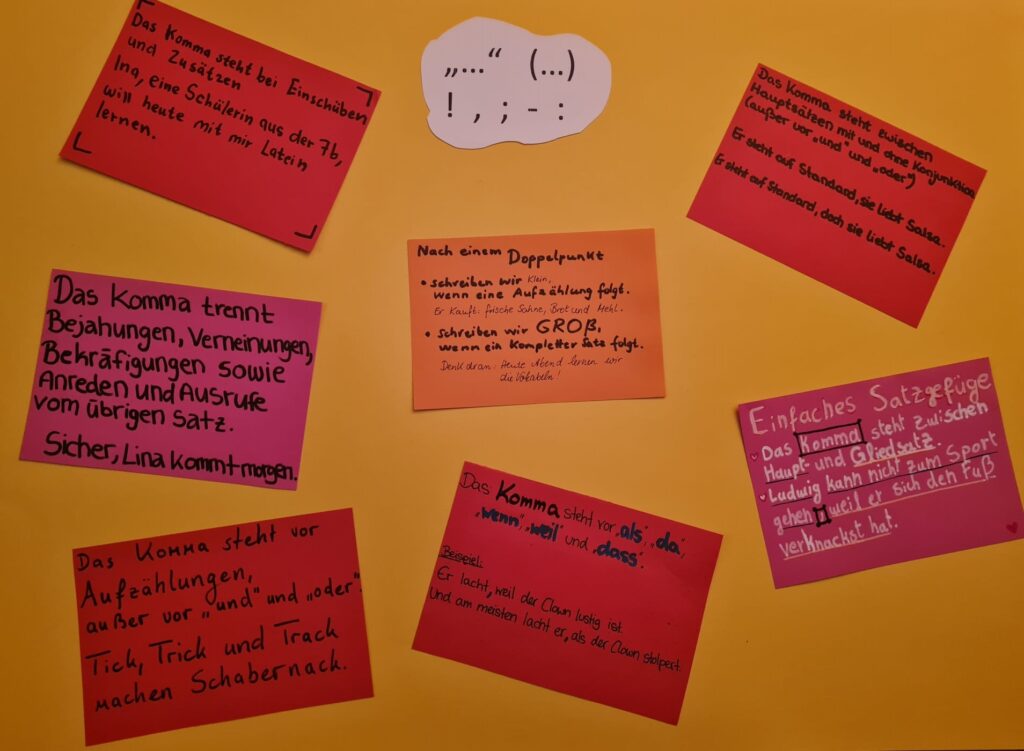 Das Komma steht bei Einschüben
und Zusätzen
Ina, eine Schülerin aus der 7b,
will heute mit mir Latein
lernen.
„..." (...)
! , ; - :
Das Komma steht zwischen
Hauptsätzen mit und ohne Konjunktion
(außer vor „und" und „oder")
Er steht auf Standard, sie liebt Salsa.
Er steht auf Standard, doch sie liebt Salsa.
Das Komma trennt
Bejahungen, Verneinungen,
Bekräfigungen sowie
Anreden und Ausrufe
vom übrigen Satz.
Sicher, Lina kommt morgen.
Nach einem Doppelpunkt
• schreiben wir klein,
wenn eine Aufzählung folgt.
Er kauft: frische Sahne, Brot und Mehl.
• schreiben wir GROß,
wenn ein kompletter Satz folgt.
Denk dran: Heute Abend lernen wir
die Vokabeln!
Einfaches Satzgefüge
Das Komma steht zwischen
Haupt- und Gliedsatz.
Ludwig kann nicht zum Sport
gehen, weil er sich den Fuß
verknackst hat.
Das Komma steht vor
Aufzählungen,
außer vor „und" und „oder".
Tick, Trick und Track
machen Schabernack.
Das Komma steht vor „als", „da",
„wenn", „weil" und „dass".
Beispiel:
Er lacht, weil der Clown lustig ist.
Und am meisten lacht er, als der Clown stolpert.